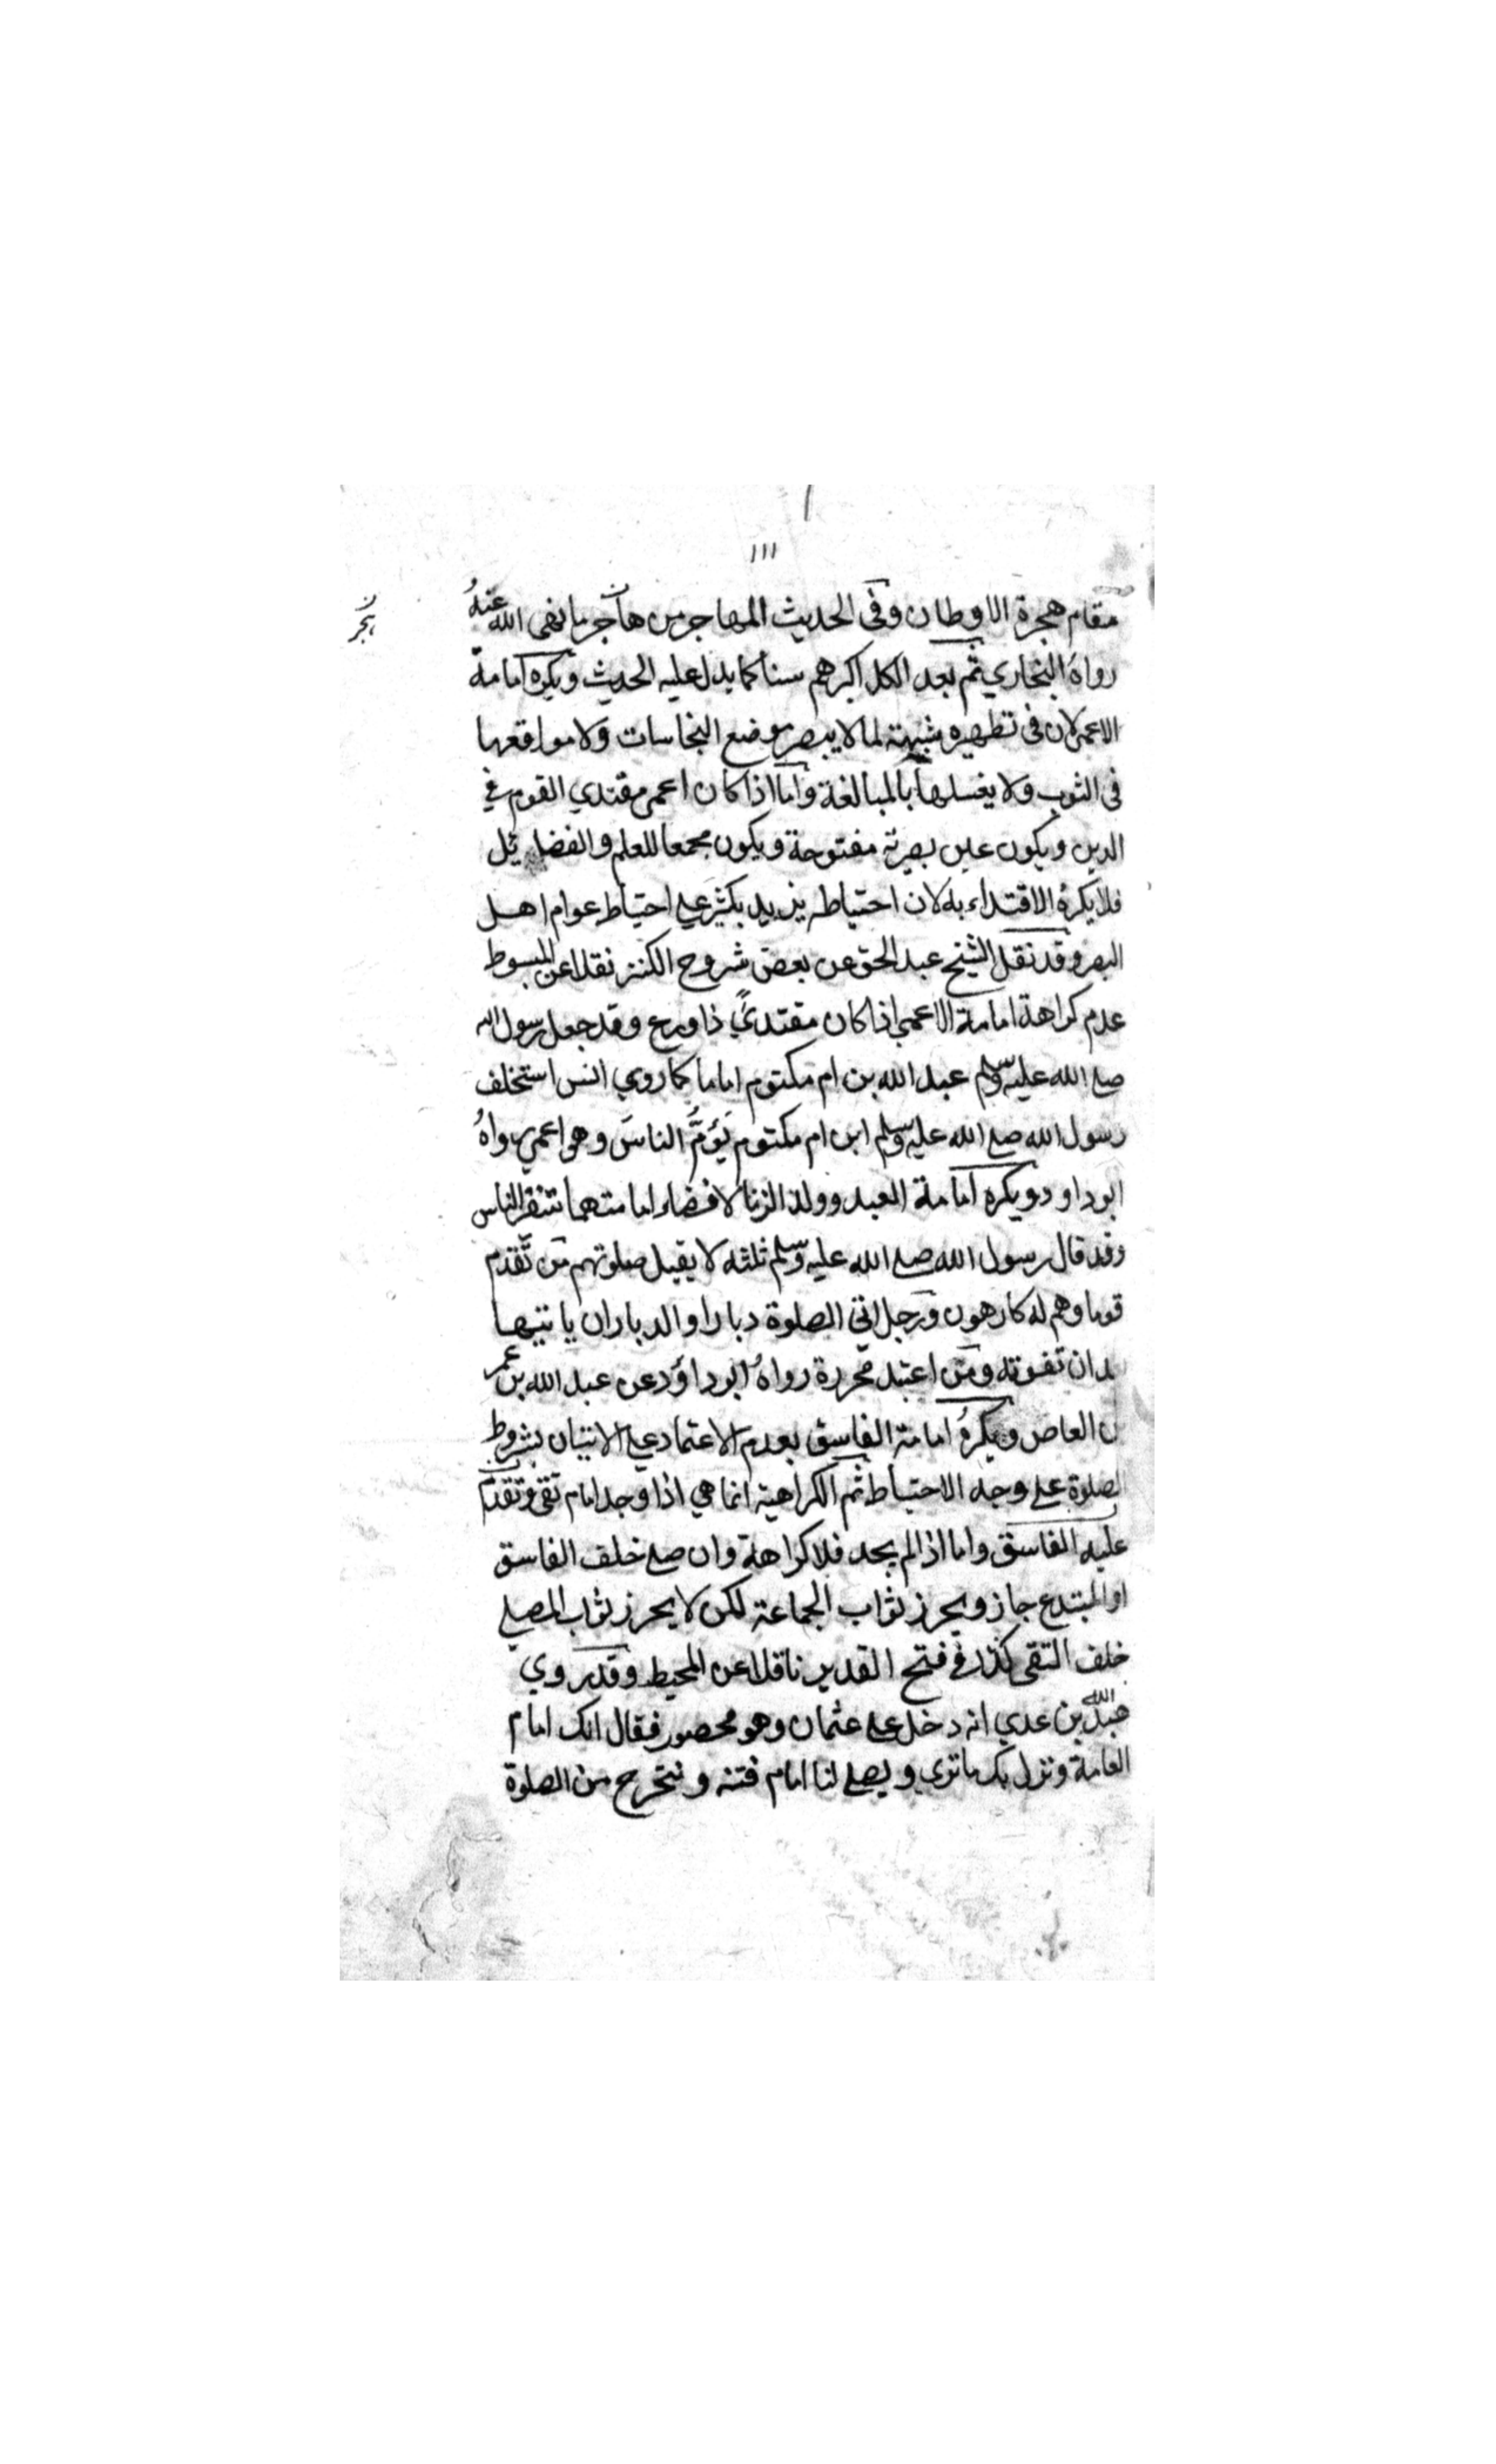 ١١١
مقام هجرة الاوطان وفى الحديث المهاجر من هاجر ما نهى الله عنهُ
رواهُ البخاري ثم بعد الكل اكبرهم سنا كما يدل عليه الحديث ويكره امامة
الاعمى لان فى تطهيره شبهة لما لا يبصر موضع النجاسات ولا مواقعها
فى الثوب ولا يغسلها بالمبالغة واما اذا كان اعمى مقتدي القوم في
الدين ويكون عين بصيرته مفتوحة ويكون مجمعا للعلم والفضل
فلا يكرهُ الاقتداء به لان احتياطه يزيد بكثير على احتياط عوام اهل
البصر وقد نقل الشيخ عبد الحق عن بعض شروح الكنز نقلا عن المبسوط
عدم كراهة امامة الاعمى اذا كان مقتديً ذا ورع وقد جعل رسول الله
صلى الله عليه وسلم عبد الله بن ام مكتوم اماما كما روي انس استخلف
رسول الله صلى الله عليه وسلم ابن ام مكتوم يَؤمُّ الناسَ وهو اعمى رواهُ
ابوداود ويكره امامة العبد وولد الزنا لافضاء امامتهما تنفر الناس
وقد قال رسول الله صلى الله عليه وسلم ثلثه لا يقبل صلوتهم من تقدم
قوما وهم له كارهون ورجل اتى الصلوة دبارا والدبار ان ياتيها
بعد ان تفوته ومن اعتبد محررة رواهُ ابوداؤد عن عبد الله بن عمر
بن العاص ويكرهُ امامة الفاسق بعدم الاعتماد على الاتيان بشروط
الصلوة على وجه الاحتياط ثم الكراهية انما هي اذا وجد امام تقى وتقدم
عليه الفاسق واما اذا لم يجد فلا كراهة وان صلى خلف الفاسق
او المبتدع جاز ويحرز ثواب الجماعة لكن لا يحرز ثواب المصلي
خلف التقى كذا في فتح القدير ناقلا عن المحيط وقد روي
عبيد الله بن عدي انه دخل على عثمان وهو محصور فقال انك امام
العامة ونزل بك ما تري ويصلى لنا امام فتنه ونتحرج من الصلوة